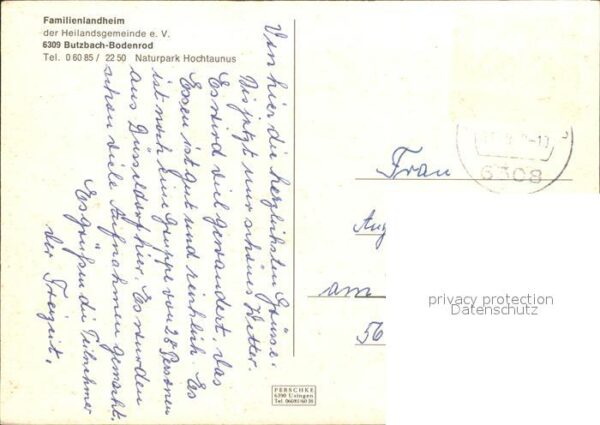 Familienlandheim
der Heilandsgemeinde e. V.
6309 Butzbach-Bodenrod
Tel. 0 60 85 / 22 50 Naturpark Hochtaunus
Von hier die herzlichsten Grüsse.
Bis jetzt nur schönes Wetter.
Es wird viel gewandert, das
Essen ist gut und reichlich. Es
ist noch eine Gruppe von 28 Personen
aus Düsseldorf hier. Es wurden
schon viele Aufnahmen gemacht.
Es grüßen die Teilnehmer
der Freizeit.
6308
Frau
Aug
am
56
privacy protection
Datenschutz
PERSCHKE
6390 Usingen
Tel. 06081/60 31